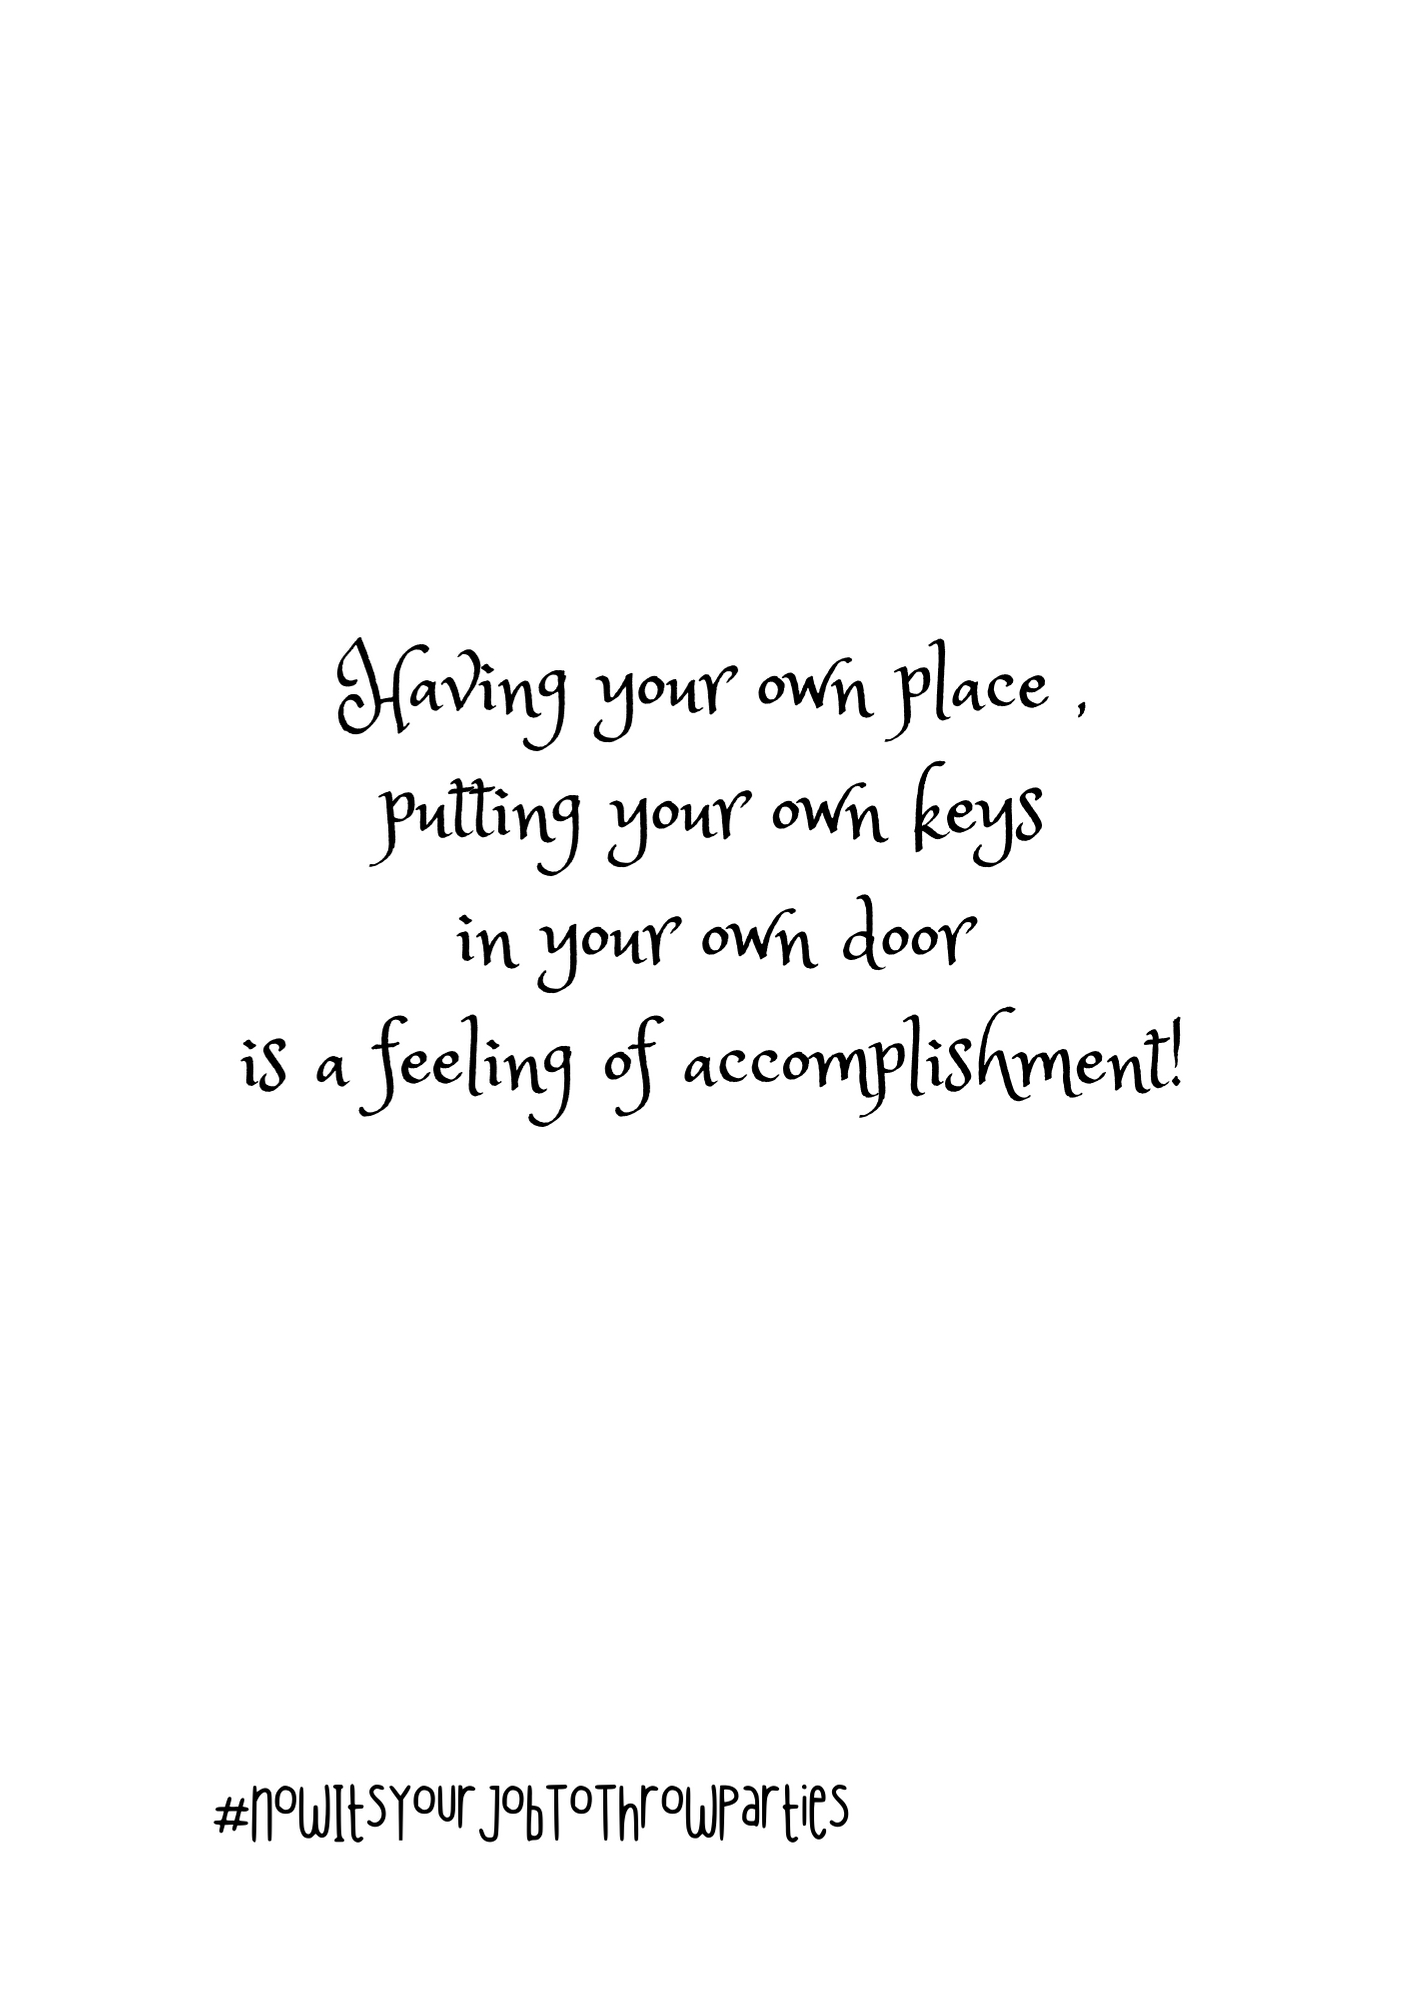 Having your own place ,
putting your own keys
in your own door
is a feeling of accomplishment!
#nowItsYourJobToThrowParties